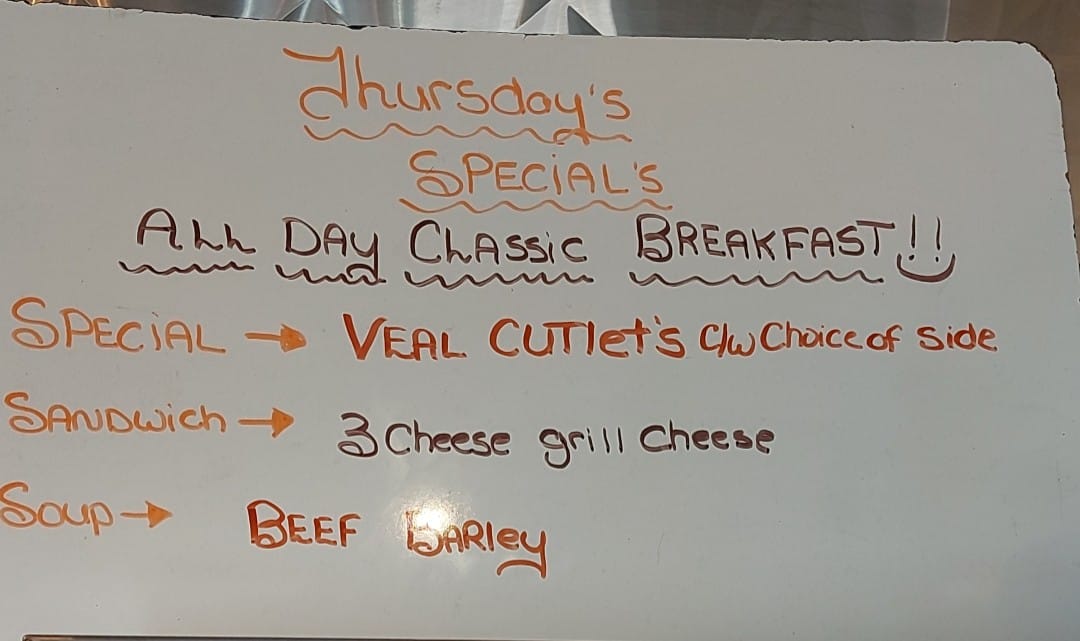 Thursday's
SPECiAL's
ALL DAy CLASSiC BREAKFAST!!
SPECiAL → VEAL CUTlet's C/w Choice of Side
SANDwich → 3 Cheese grill Cheese
Soup → BEEF BARley